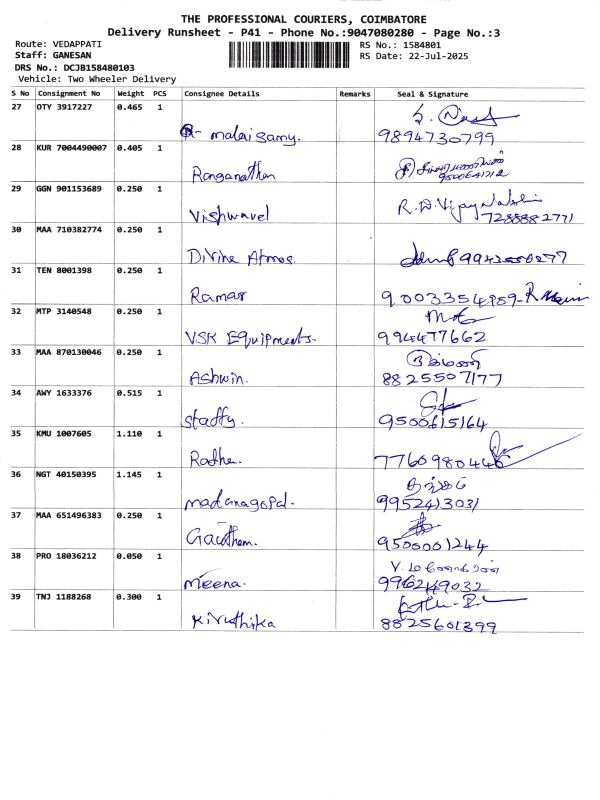 THE PROFESSIONAL COURIERS, COIMBATORE
Delivery Runsheet - P41 - Phone No.:9047080280 - Page No.:3
Route: VEDAPPATI
RS No.: 1584801
Staff: GANESAN
RS Date: 22-Jul-2025
DRS No.: DCJB158480103
Vehicle: Two Wheeler Delivery
S No Consignment No Weight PCS Consignee Details Remarks Seal & Signature
27 OTY 3917227 0.465 1
malaisamy. 9894730799
28 KUR 7004490007 0.405 1
Ranganathan 9500641712
29 GGN 901153689 0.250 1
Vishwavel R.D.Vijayalakshmi
7288882771
30 MAA 710382774 0.250 1
Divine Atmos.
31 TEN 8001398 0.250 1
Ramar
32 MTP 3140548 0.250 1
VSK Equipments. 994477662
33 MAA 870130046 0.250 1
Ashwin. 8825507177
34 AWY 1633376 0.515 1
Staffy. 9500615164
35 KMU 1007605 1.110 1
Radha. 7760980446
36 NGT 40150395 1.145 1
madanagopal. 9952413031
37 MAA 651496383 0.250 1
Gautham. 9500061244
38 PRO 18036212 0.050 1
meena. 9962149032
39 TNJ 1188268 0.300 1
Kiruthika 8825601399